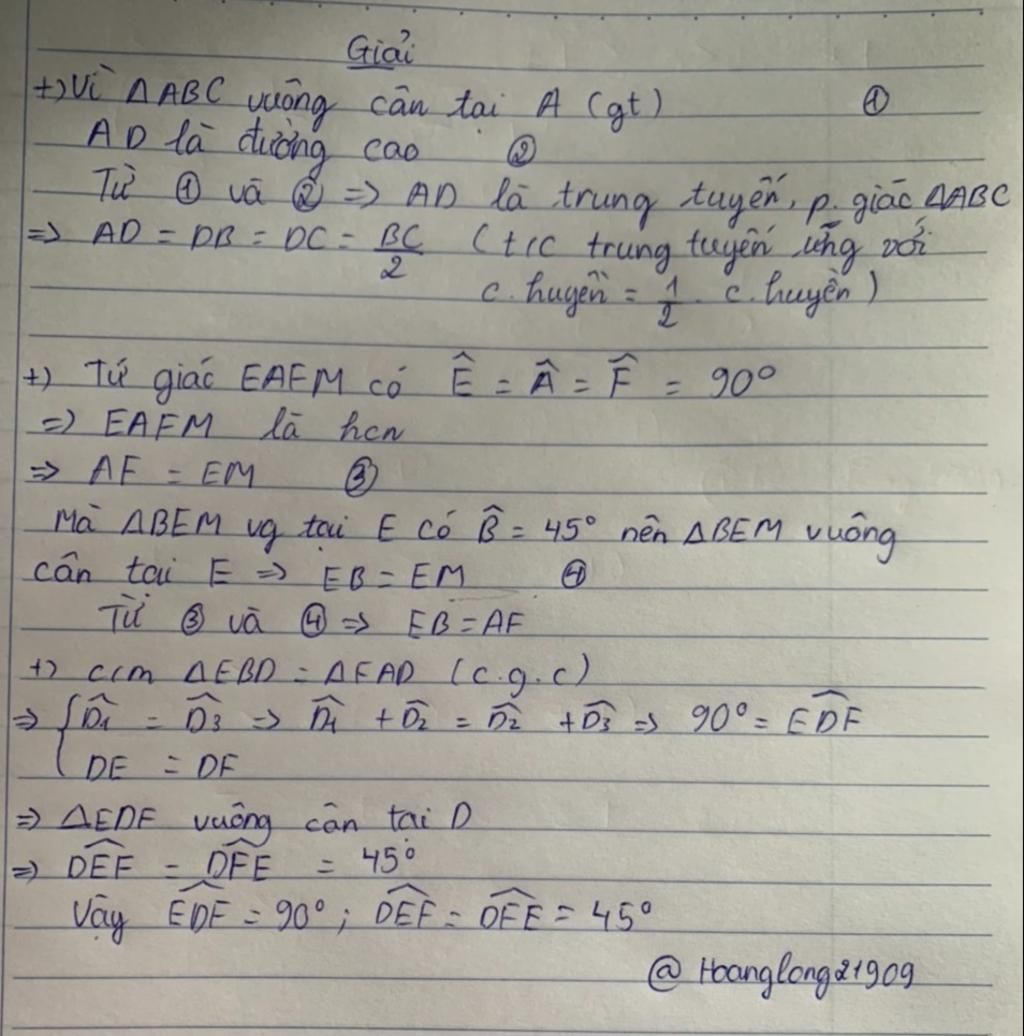 Giải
+) Vì ΔABC vuông cân tại A (gt) ①
AD là đường cao ②
Từ ① và ② => AD là trung tuyến, p. giác ΔABC
=> AD = DB = DC = BC/2 (t/c trung tuyến ứng với
c. huyền = 1/2 . c. huyền)
+) Tứ giác EAFM có Ê = Â = F̂ = 90°
=> EAFM là hcn
=> AF = EM ③
Mà ΔBEM vg tại E có B̂ = 45° nên ΔBEM vuông
cân tại E => EB = EM ④
Từ ③ và ④ => EB = AF
+) c/m ΔEBD = ΔFAD (c.g.c)
=> { D̂1 = D̂3 => D̂1 + D̂2 = D̂2 + D̂3 => 90° = EDF̂
DE = DF
=> ΔEDF vuông cân tại D
=> DEF̂ = DFÊ = 45°
Vậy EDF̂ = 90° ; DEF̂ = DFÊ = 45°
@ Hoanglong21909